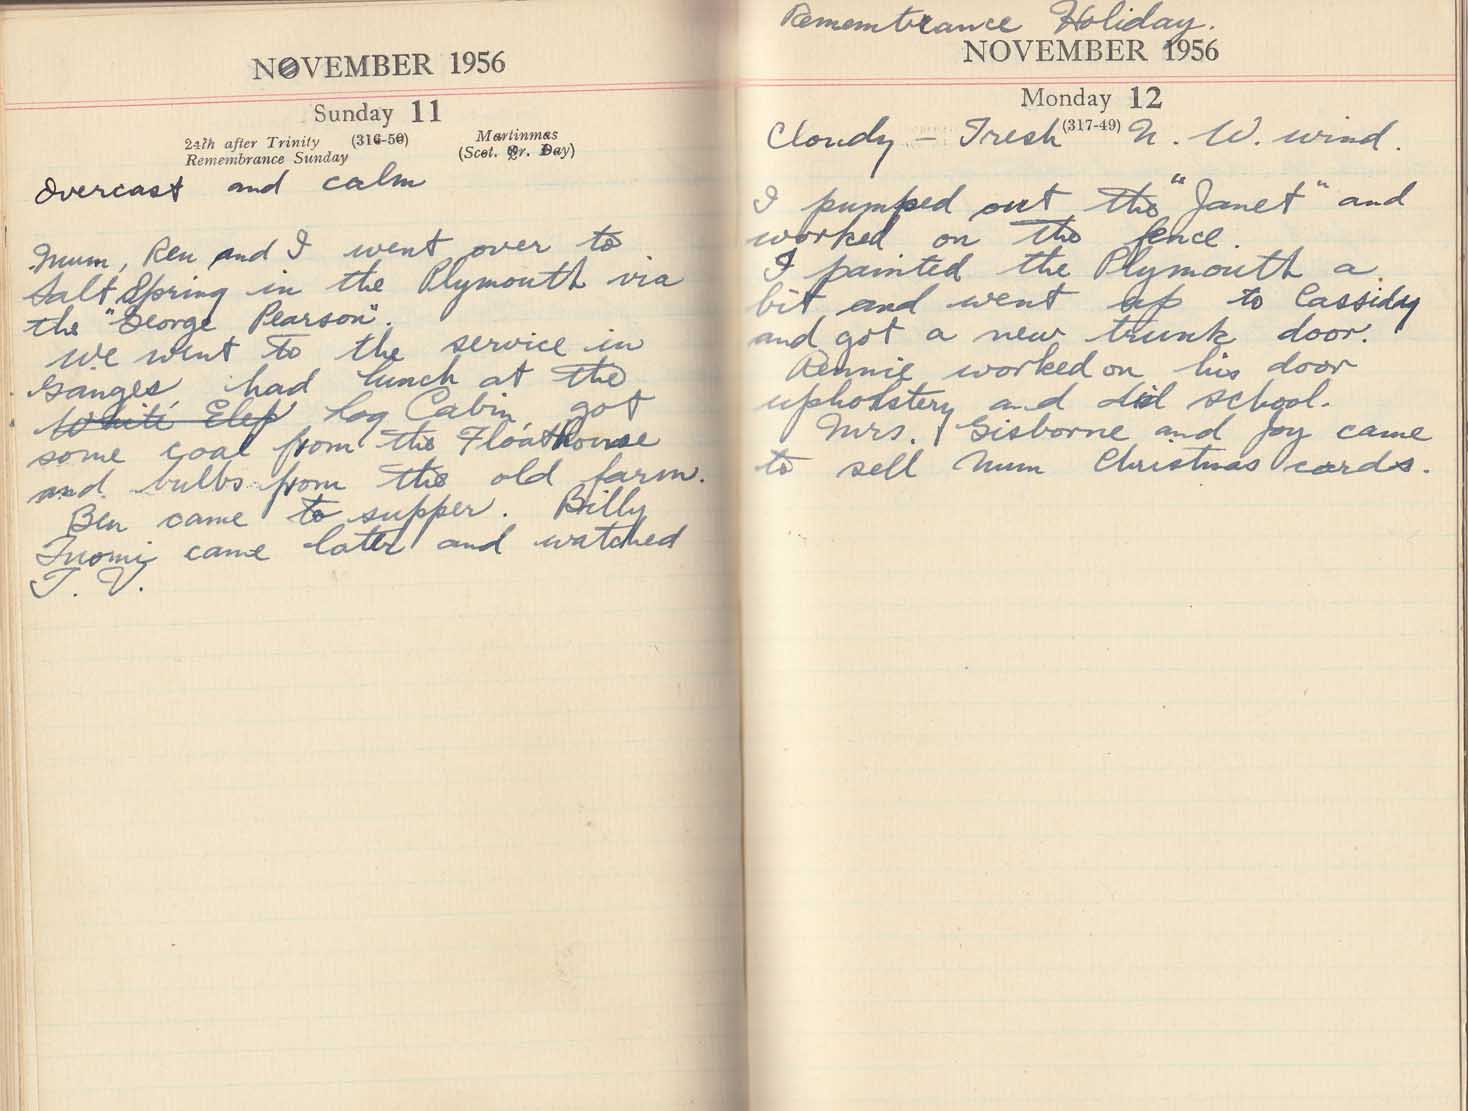 NOVEMBER 1956
Sunday 11
24th after Trinity (316-50) Martinmas
Remembrance Sunday (Scot. Qr. Day)
Overcast and calm
Mum, Ren and I went over to
Salt Spring in the Plymouth via
the "George Pearson".
We went to the service in
Ganges, had lunch at the
White Elep Log Cabin, got
some coal from the Floathouse
and bulbs from the old farm.
Ben came to supper. Billy
came later and watched
T. V.
Remembrance Holiday.
NOVEMBER 1956
Monday 12
(317-49)
Cloudy – Fresh N. W. wind.
I pumped out the "Janet" and
worked on the fence.
I painted the Plymouth a
bit and went up to Cassidy
and got a new trunk door.
Rennie worked on his door
upholstery and did school.
Mrs. Gisborne and Joy came
to sell Mum Christmas cards.